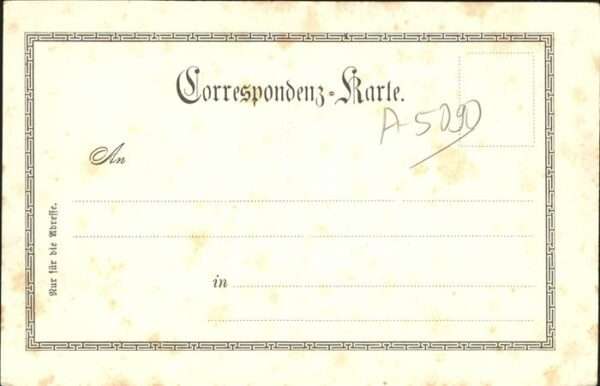 Correspondenz-Karte.
A-5090
An
in
Nur für die Adresse.